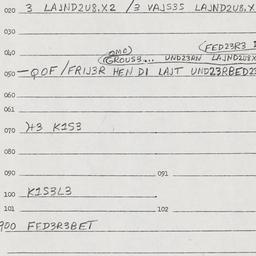 020 3 LAJND2U8,X2 /3 VAJS3S LAJND2U8,X
030
040 (FED23R3 I
2MC)
(GROUS3... UND23RN LAJND2U8X
050 —QOF/FRIJ3R HEN DI LAJT UND23RBED23
060
061
070 )+3 K1S3
080
090 091
100 K1S3L3
101 102
900 FED3R3BET